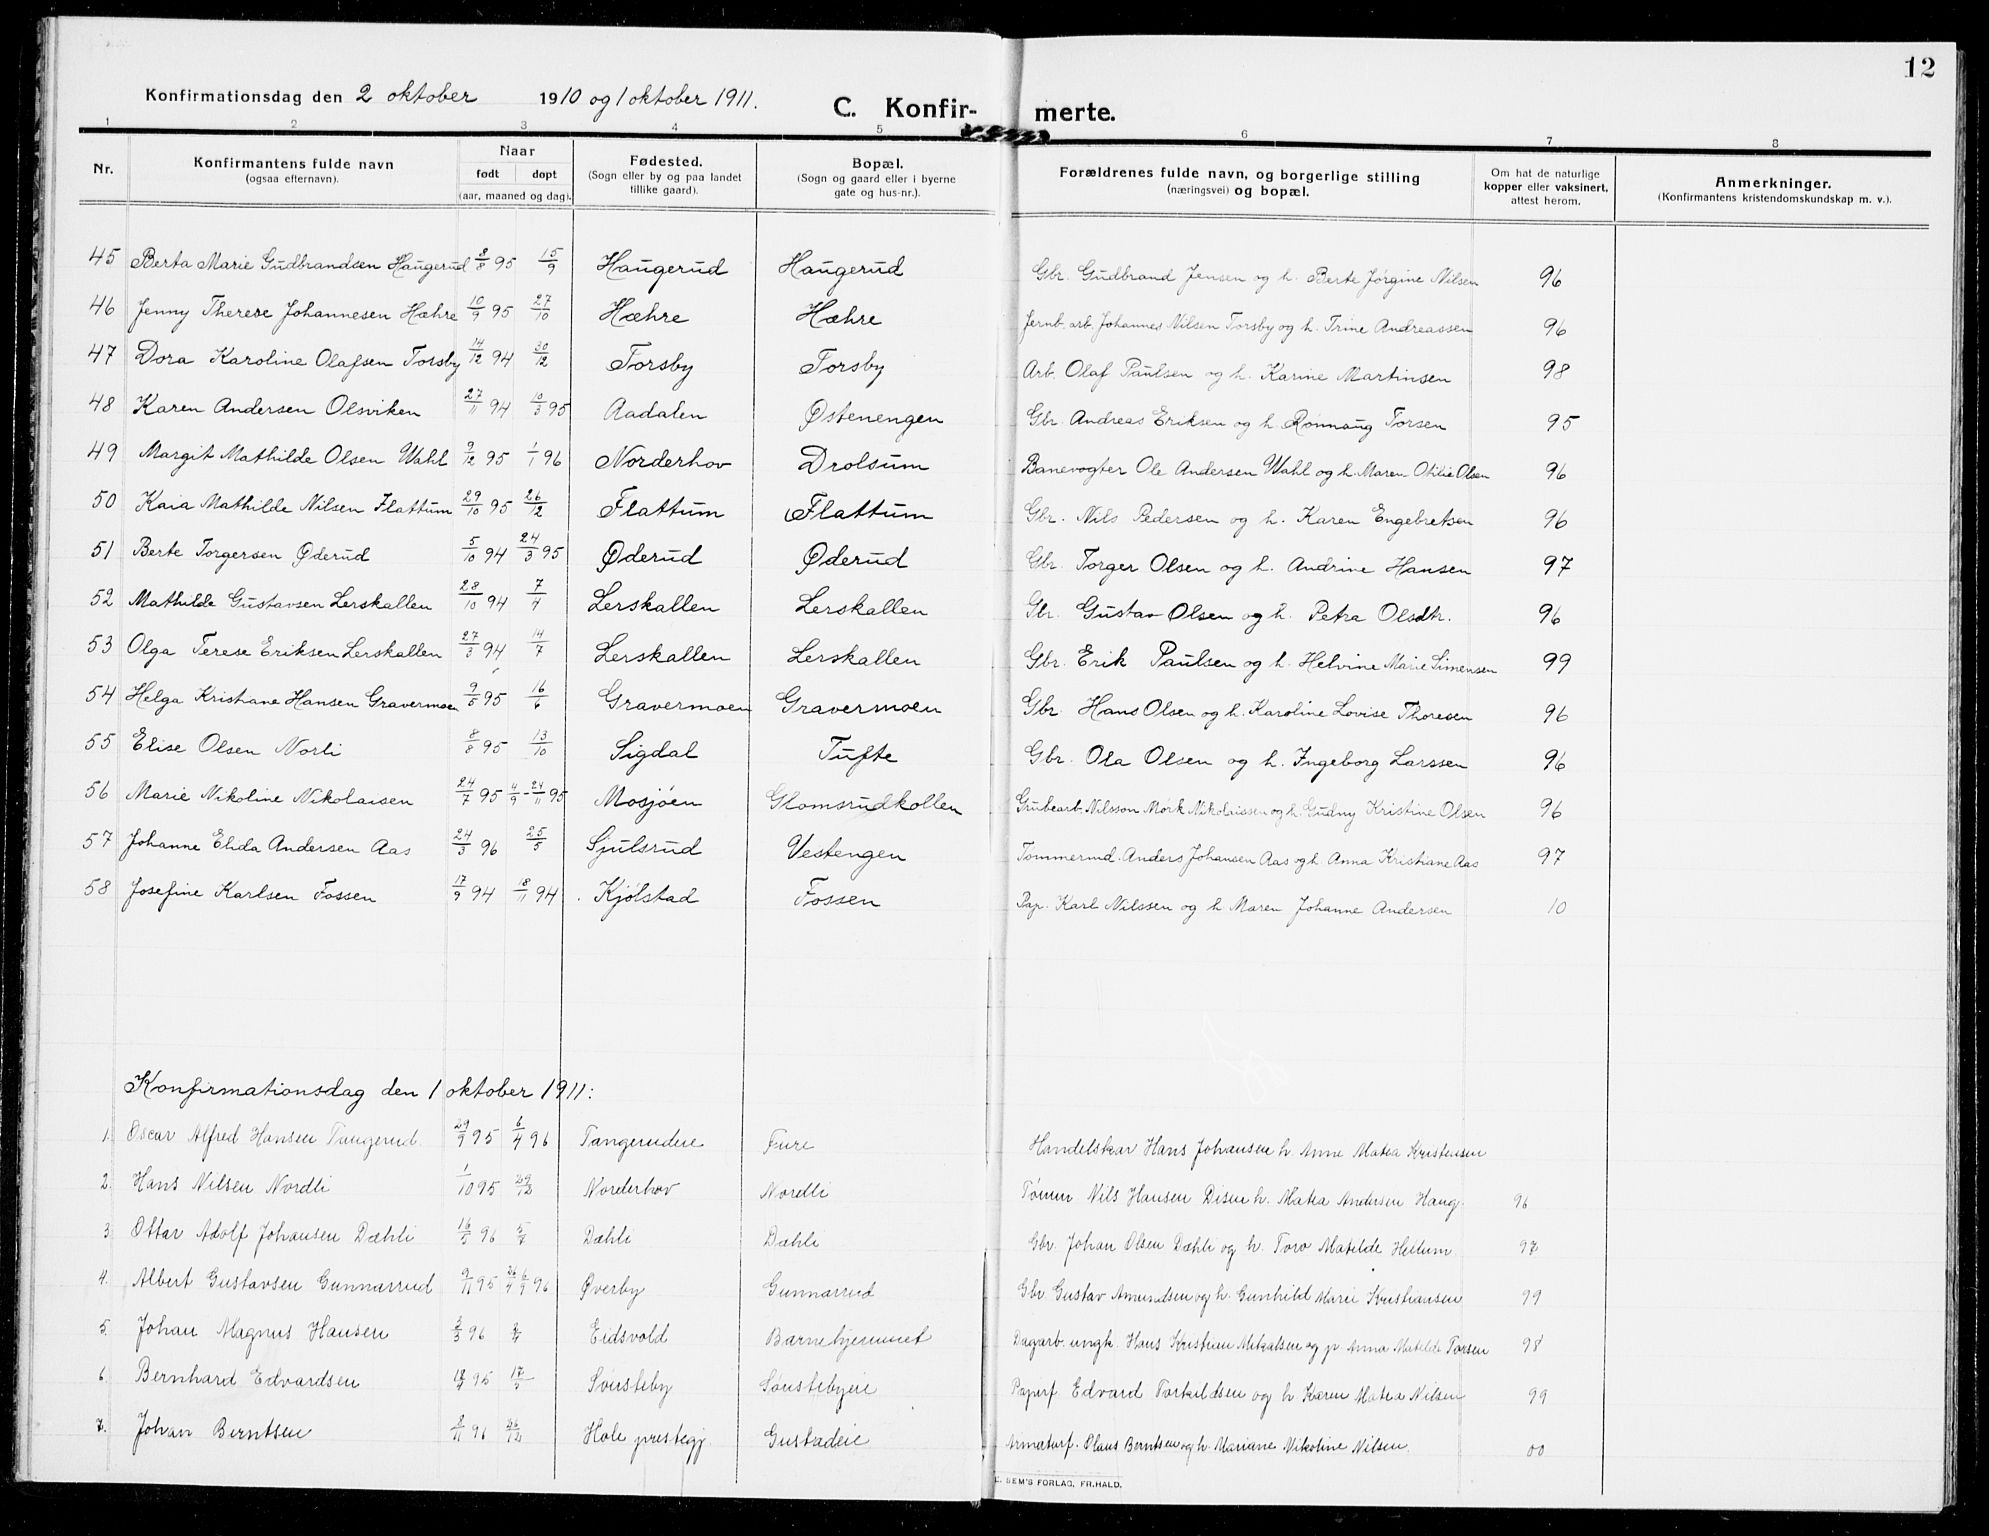 12
Konfirmationsdag den 2 oktober 1910 og 1 oktober 1911. C. Konfir- merte.
1 2 3 4 5 6 7 8
Nr. Konfirmantens fulde navn (ogsaa efternavn). Naar født døpt (aar, maaned og dag). Fødested. (Sogn eller by og paa landet tillike gaard). Bopæl. (Sogn og gaard eller i byerne gate og hus-nr.). Forældrenes fulde navn, og borgerlige stilling (næringsvei) og bopæl. Om hat de naturlige kopper eller vaksinert, attest herom. Anmerkninger. (Konfirmantens kristendomskundskap m. v.).
45 Berta Marie Gudbrandsen Haugerud 8/8 95 15/9 Haugerud Haugerud Gbr. Gudbrand Jensen og h. Berte Jørgine Nilsen 96
46 Jenny Therese Johannesen Hæhre 10/9 95 27/10 Hæhre Hæhre Jernb. arb. Johannes Nilsen Torsby og h. Trine Andreassen 96
47 Dora Karoline Olafsen Torsby 14/12 94 30/12 Torsby Torsby Arb. Olaf Paulsen og h. Karine Martinsen 98
48 Karen Andersen Olsviken 27/11 94 10/3 95 Aadalen Østenengen Gbr. Andreas Eriksen og h. Rønnaug Torsen 95
49 Margit Mathilde Olsen Wahl 9/12 95 1/1 96 Norderhov Drolsum Banevogter Ole Andersen Wahl og h. Maren Otilie Olsen 96
50 Kaia Mathilde Nilsen Flattum 29/10 95 26/12 Flattum Flattum Gbr. Nils Pedersen og h. Karen Engebretsen 96
51 Berte Torgersen Øderud 5/10 94 24/3 95 Øderud Øderud Gbr. Torger Olsen og h. Andrine Hansen 97
52 Mathilde Gustavsen Lerskallen 28/10 94 7/4 Lerskallen Lerskallen Gbr. Gustav Olsen og h. Petra Olsdtr. 96
53 Olga Terese Eriksen Lerskallen 27/3 94 14/7 Lerskallen Lerskallen Gbr. Erik Paulsen og h. Helvine Marie Simensen 99
54 Helga Kristiane Hansen Gravermoen 9/5 95 16/6 Gravermoen Gravermoen Gbr. Hans Olsen og h. Karoline Lovise Thoresen 96
55 Elise Olsen Norli 8/8 95 13/10 Sigdal Tufte Gbr. Ola Olsen og h. Ingeborg Larssen 96
56 Marie Nikoline Nikolaisen 24/7 95 4/9 - 24/11 95 Mosjøen Glomsrudkollen Grubearb. Nilsson Mørk Nikolaissen og h. Gudny Kristine Olsen 96
57 Johanne Elida Andersen Aas 24/3 96 25/5 Sjulsrud Vestengen Tømmermd. Anders Johansen Aas og h. Anna Kristiane Aas 97
58 Josefine Karlsen Fossen 17/9 94 18/11 94 Kjølstad Fossen Pap. Karl Nilssen og h Maren Johanne Andersen 10
Konfirmationsdag den 1 oktober 1911:
1. Oscar Alfred Hansen Tangerud 29/9 95 6/4 96 Tangerudeie Fure Handelskar Hans Johansen h. Anne Matea Kristensen
2. Hans Nilsen Nordli 1/10 95 29/12 Norderhov Nordli Tømm Nils Hansen Disen h. Matea Andersen Haug. 96
3. Ottar Adolf Johansen Dæhli 16/5 96 5/7 Dæhli Dæhli Gbr. Johan Olsen Dæhli og h. Toro Matilde Hellum 97
4. Albert Gustavsen Gunnarrud 9/11 95 26/4 6/9 96 Øverby Gunnarrud Gbr. Gustav Amundsen og h. Gunhild Marie Kristiansen 99
5. Johan Magnus Hansen 3/3 96 Eidsvold Barnehjemmet Dagarb. ungk. Hans Kristian Mikalsen og p. Anna Matilde Torsen 98
6. Bernhard Edvardsen 95 Sønsteby Sønstebyeie Paperf. Edvard Torkildsen og h Karen Matea Nilsen 99
7. Johan Berntsen 8/11 96 26/12 Hole prestegj. Gustadeie Armaturf. Claus Berntsen og h. Mariane Nikoline Nilsen. 00
E. SEM'S FORLAG, FR.HALD.